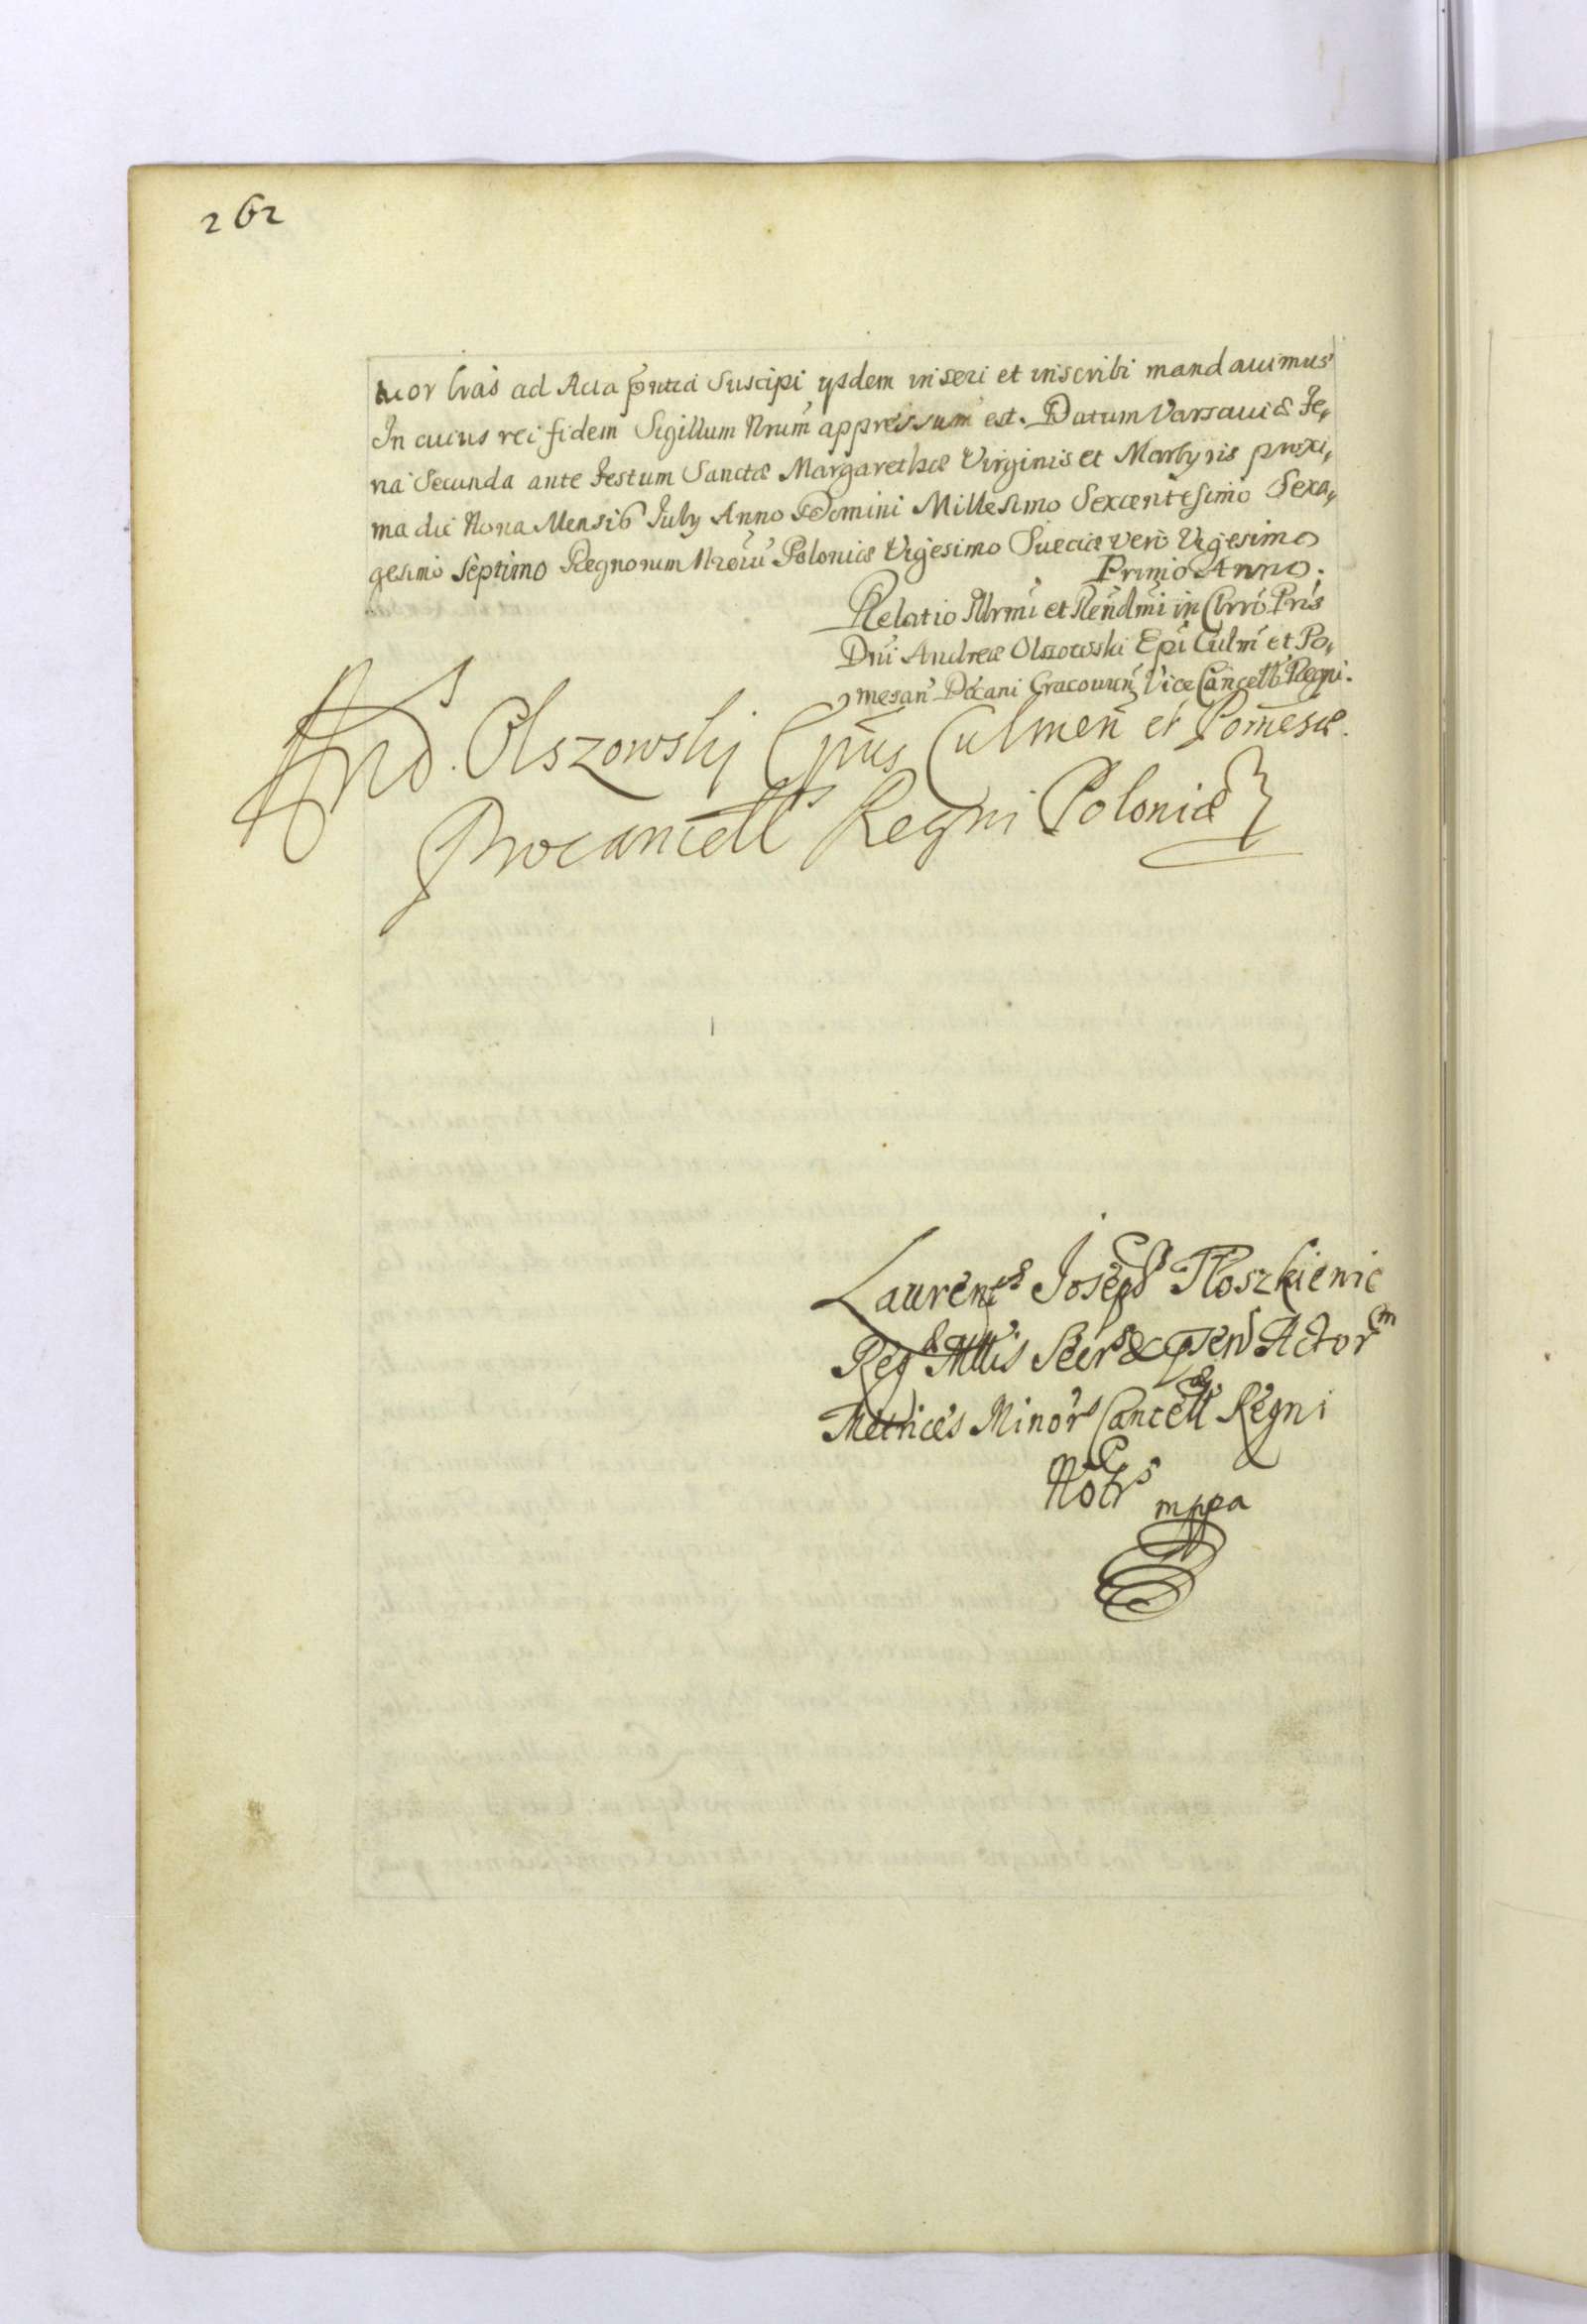 262
uor lrãs ad Acta p̃ntia Suscipi ysdem inseri et inscribi mandauimus
In cuius rei fidem Sigillum Nrum̃ appressum est. Datum Varsauiæ Fe„
ria Secunda ante Festum Sanctæ Margarethæ Virginis et Martyris proxi„
ma die Nona Mensis July Anno Domini Millesimo Sexcentesimo Sexa„
gesimo Septimo Regnorum Nrorũ Poloniæ Vigesimo Sueciæ verò Vigesimo
Primo Anno.
Relatio Illrmi et Rendmi in Chrõ Pris
Dni Andreæ Olszowski Epi Culm̃ et Po„
mesan̄ Decani Cracouien̄ Vice Cancell Regni.
And. Olszowskj Epũs Culmen̄ et Pomesæ.
Procancell Regni Poloniæ
Laurent Joseph Ploszkienic
Reg Mtis Secr & psen Actor m
Metrices Minor Cancell Regni
Notr s
mppa